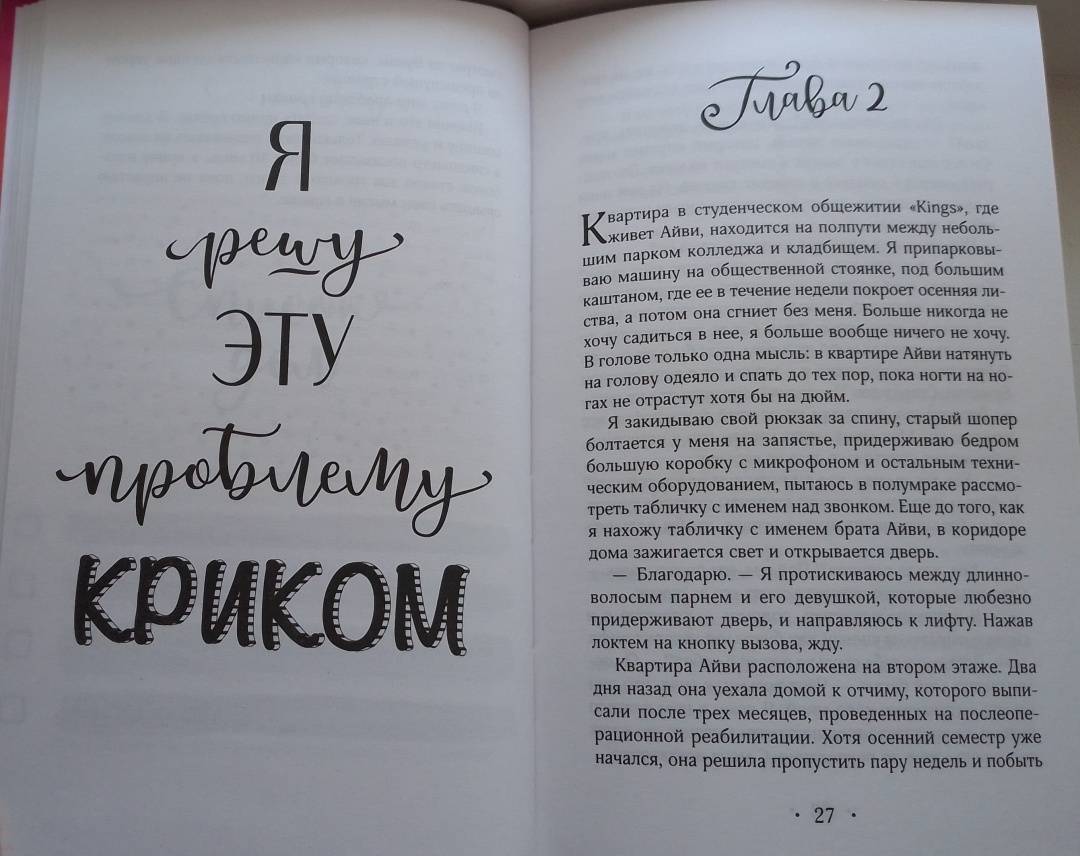 Я
решу
ЭТУ
проблему
КРИКОМ
Глава 2
Квартира в студенческом общежитии «Kings», где
живет Айви, находится на полпути между неболь-
шим парком колледжа и кладбищем. Я припарковы-
ваю машину на общественной стоянке, под большим
каштаном, где ее в течение недели покроет осенняя ли-
ства, а потом она сгниет без меня. Больше никогда не
хочу садиться в нее, я больше вообще ничего не хочу.
В голове только одна мысль: в квартире Айви натянуть
на голову одеяло и спать до тех пор, пока ногти на но-
гах не отрастут хотя бы на дюйм.
Я закидываю свой рюкзак за спину, старый шопер
болтается у меня на запястье, придерживаю бедром
большую коробку с микрофоном и остальным техни-
ческим оборудованием, пытаюсь в полумраке рассмо-
треть табличку с именем над звонком. Еще до того, как
я нахожу табличку с именем брата Айви, в коридоре
дома зажигается свет и открывается дверь.
— Благодарю. — Я протискиваюсь между длинно-
волосым парнем и его девушкой, которые любезно
придерживают дверь, и направляюсь к лифту. Нажав
локтем на кнопку вызова, жду.
Квартира Айви расположена на втором этаже. Два
дня назад она уехала домой к отчиму, которого выпи-
сали после трех месяцев, проведенных на послеопе-
рационной реабилитации. Хотя осенний семестр уже
начался, она решила пропустить пару недель и побыть
· 27 ·